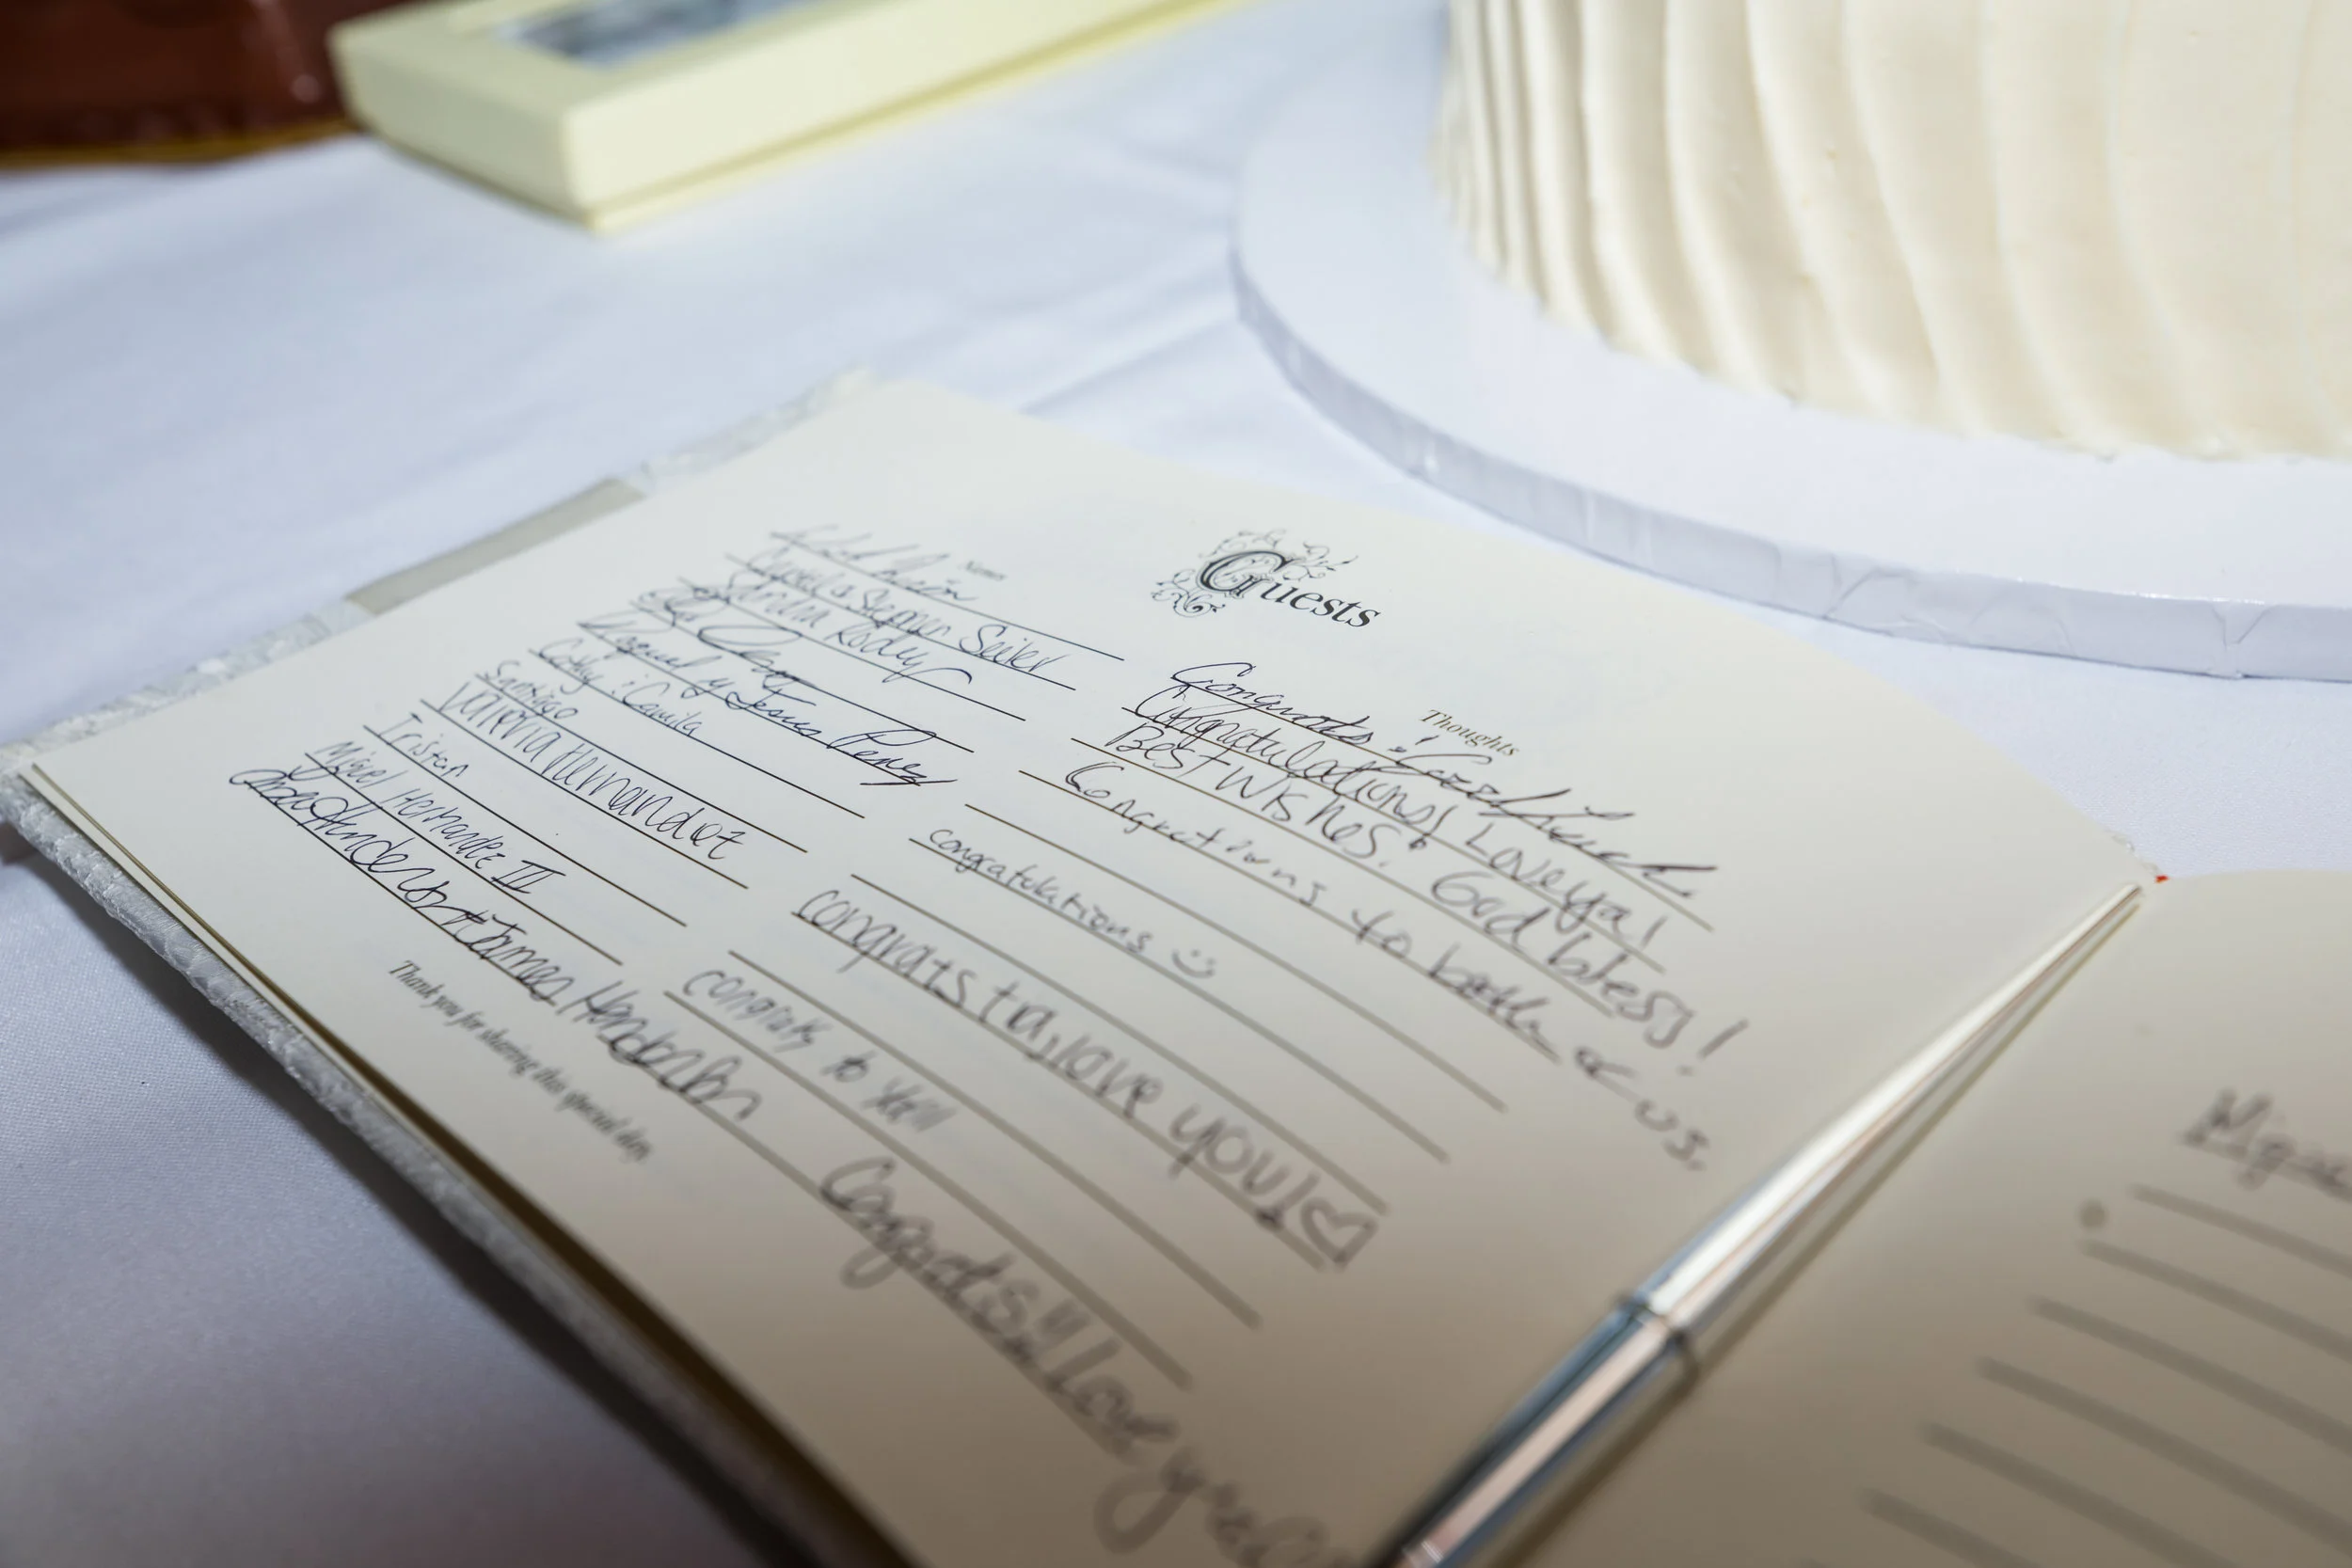 Guests
Name
Thoughts
Stephen Seiler
Sandra Rodny
Raquel y Jesus Perez
Cathy : Camila
Santiago
Valeria Hernandez
Tristan
Miguel Hernandez III
Congrats! Good Luck.
Congratulations! Love ya!
Best Wishes! God bless!
Congrations to both of us.
congratulations
congrats tia, love you!
congrats to y'all
Congrats!! love
Thank you for sharing this special day.